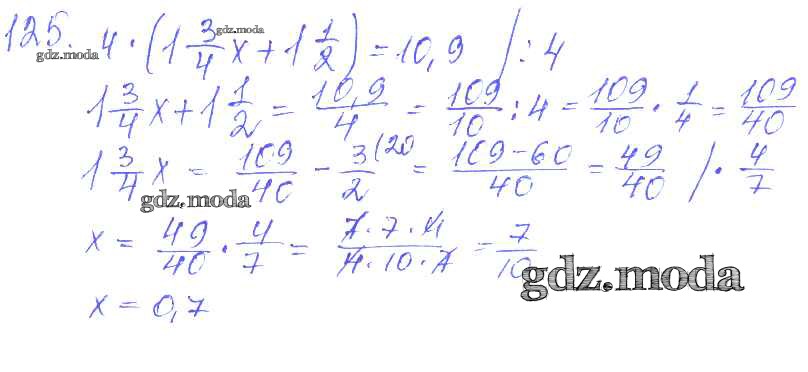 125. 4 · (1 3/4 x + 1 1/2) = 10,9 | : 4
gdz.moda
gdz.moda
1 3/4 x + 1 1/2 = 10,9/4 = 109/10 : 4 = 109/10 · 1/4 = 109/40
1 3/4 x = 109/40 - 3/2 (20 = 109-60/40 = 49/40 | · 4/7
gdz.moda
x = 49/40 · 4/7 = 7·7·4/4·10·7 = 7/10
gdz.moda
x = 0,7